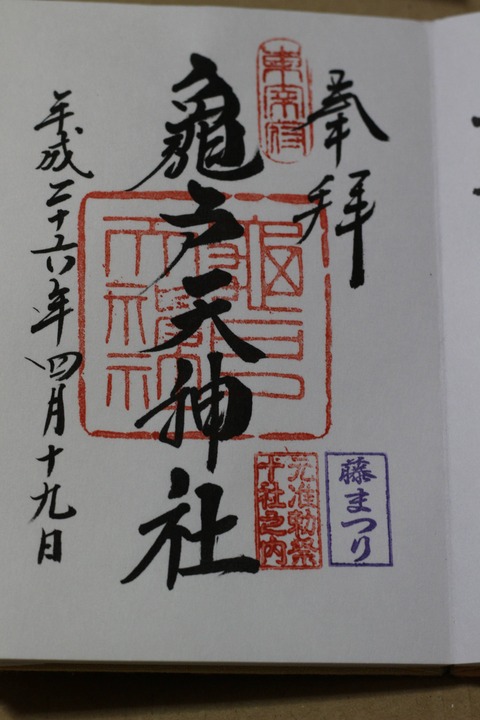 奉拝
東宰府
亀戸天神社
元准勅祭
十社之内
藤まつり
平成二十六年四月十九日